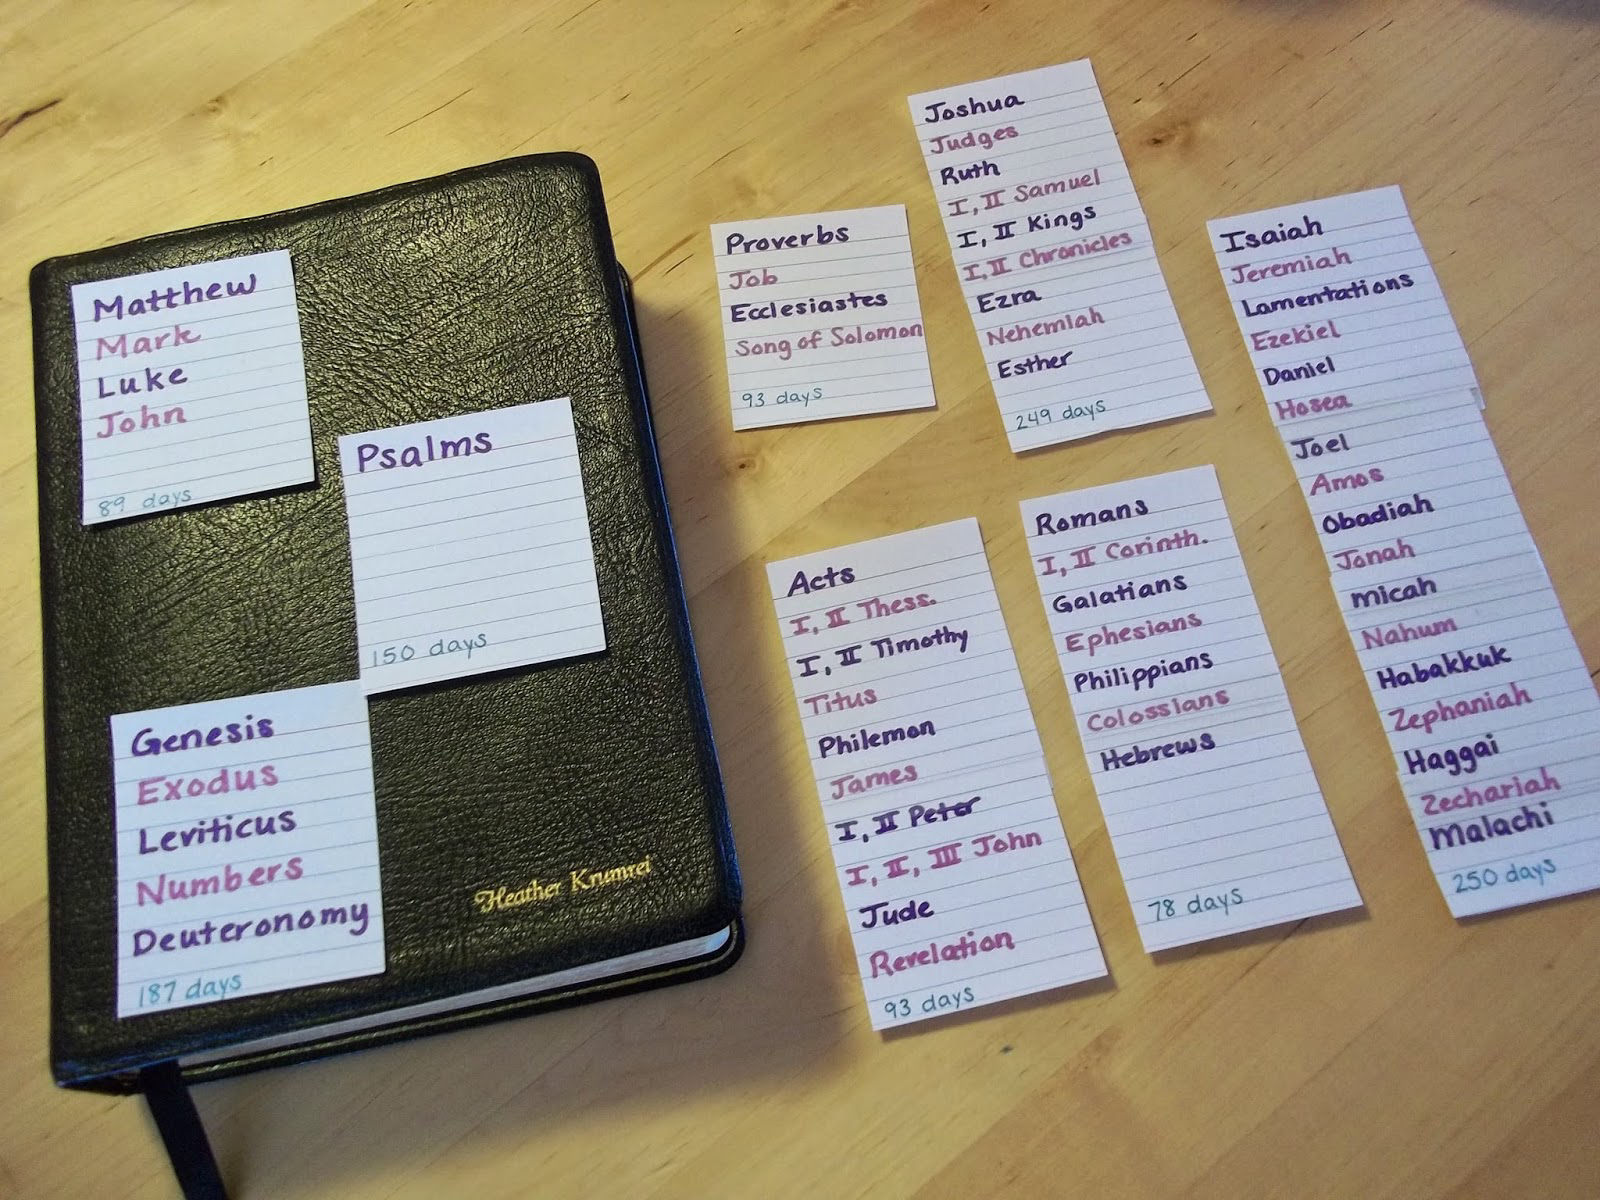 Matthew
Mark
Luke
John
89 days
Psalms
150 days
Genesis
Exodus
Leviticus
Numbers
Deuteronomy
187 days
Heather Krumrei
Proverbs
Job
Ecclesiastes
Song of Solomon
93 days
Joshua
Judges
Ruth
I, II Samuel
I, II Kings
I, II Chronicles
Ezra
Nehemiah
Esther
249 days
Isaiah
Jeremiah
Lamentations
Ezekiel
Daniel
Hosea
Joel
Amos
Obadiah
Jonah
Micah
Nahum
Habakkuk
Zephaniah
Haggai
Zechariah
Malachi
250 days
Acts
I, II Thess.
I, II Timothy
Titus
Philemon
James
I, II Peter
I, II, III John
Jude
Revelation
93 days
Romans
I, II Corinth.
Galatians
Ephesians
Philippians
Colossians
Hebrews
78 days